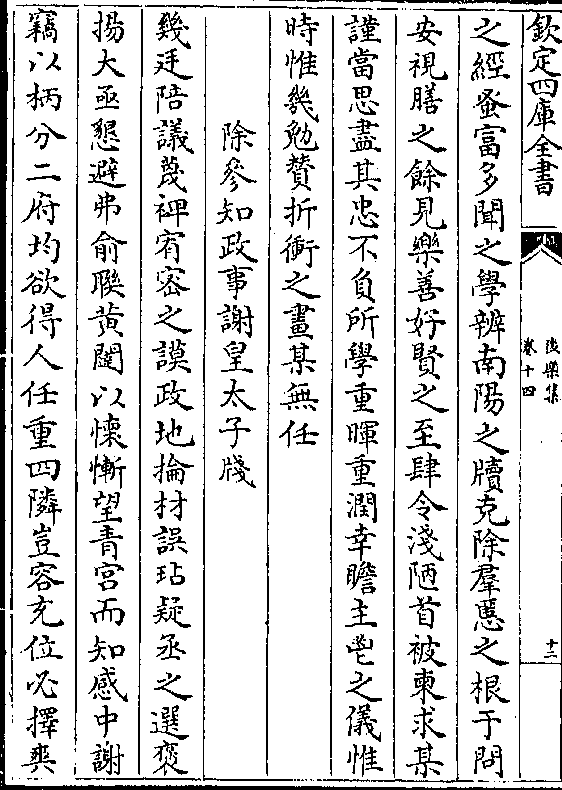 欽定四庫全書
後樂集
卷十四
十二
之經蚤富多聞之學辨南陽之牘克除羣慝之根于問
安視膳之餘見樂善好賢之至肆令淺陋首被柬求某
謹當思盡其忠不負所學重暉重潤幸瞻主鬯之儀惟
時惟幾勉贊折衝之畫某無任
除參知政事謝皇太子牋
幾廷陪議蔑裨宥密之謨政地掄材誤玷疑丞之選褒
揚大亟懇避弗俞聨黄闥以懷慚望青宫而知感中謝
竊以柄分二府均欲得人任重四隣豈容充位必擇英